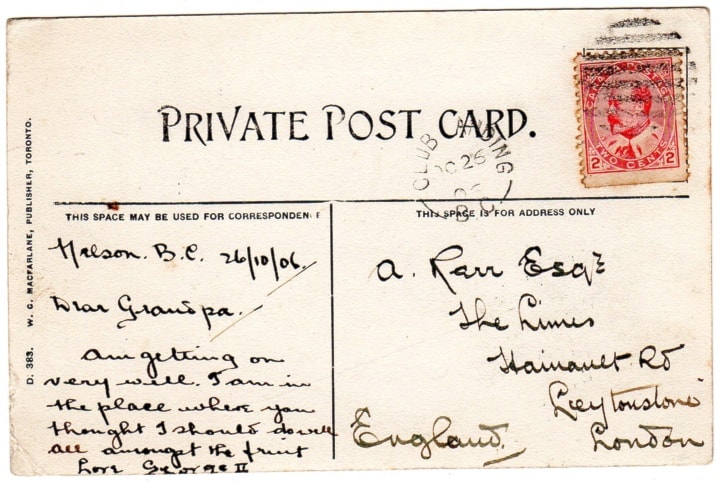 PRIVATE POST CARD.
CANADA POSTAGE
2 TWO CENTS 2
CLUB
OC 26
06
B.C.
W. G. MACFARLANE, PUBLISHER, TORONTO.
D. 383.
THIS SPACE MAY BE USED FOR CORRESPONDENCE
Nelson. B.C. 26/10/06.
Dear Grandpa.
am getting on
very well. I am in
the place where you
thought I should do well
all amongst the fruit
Love George II
THIS SPACE IS FOR ADDRESS ONLY
A. Kerr Esqre
The Limes
Hainault Rd
Leytonstone
London
England